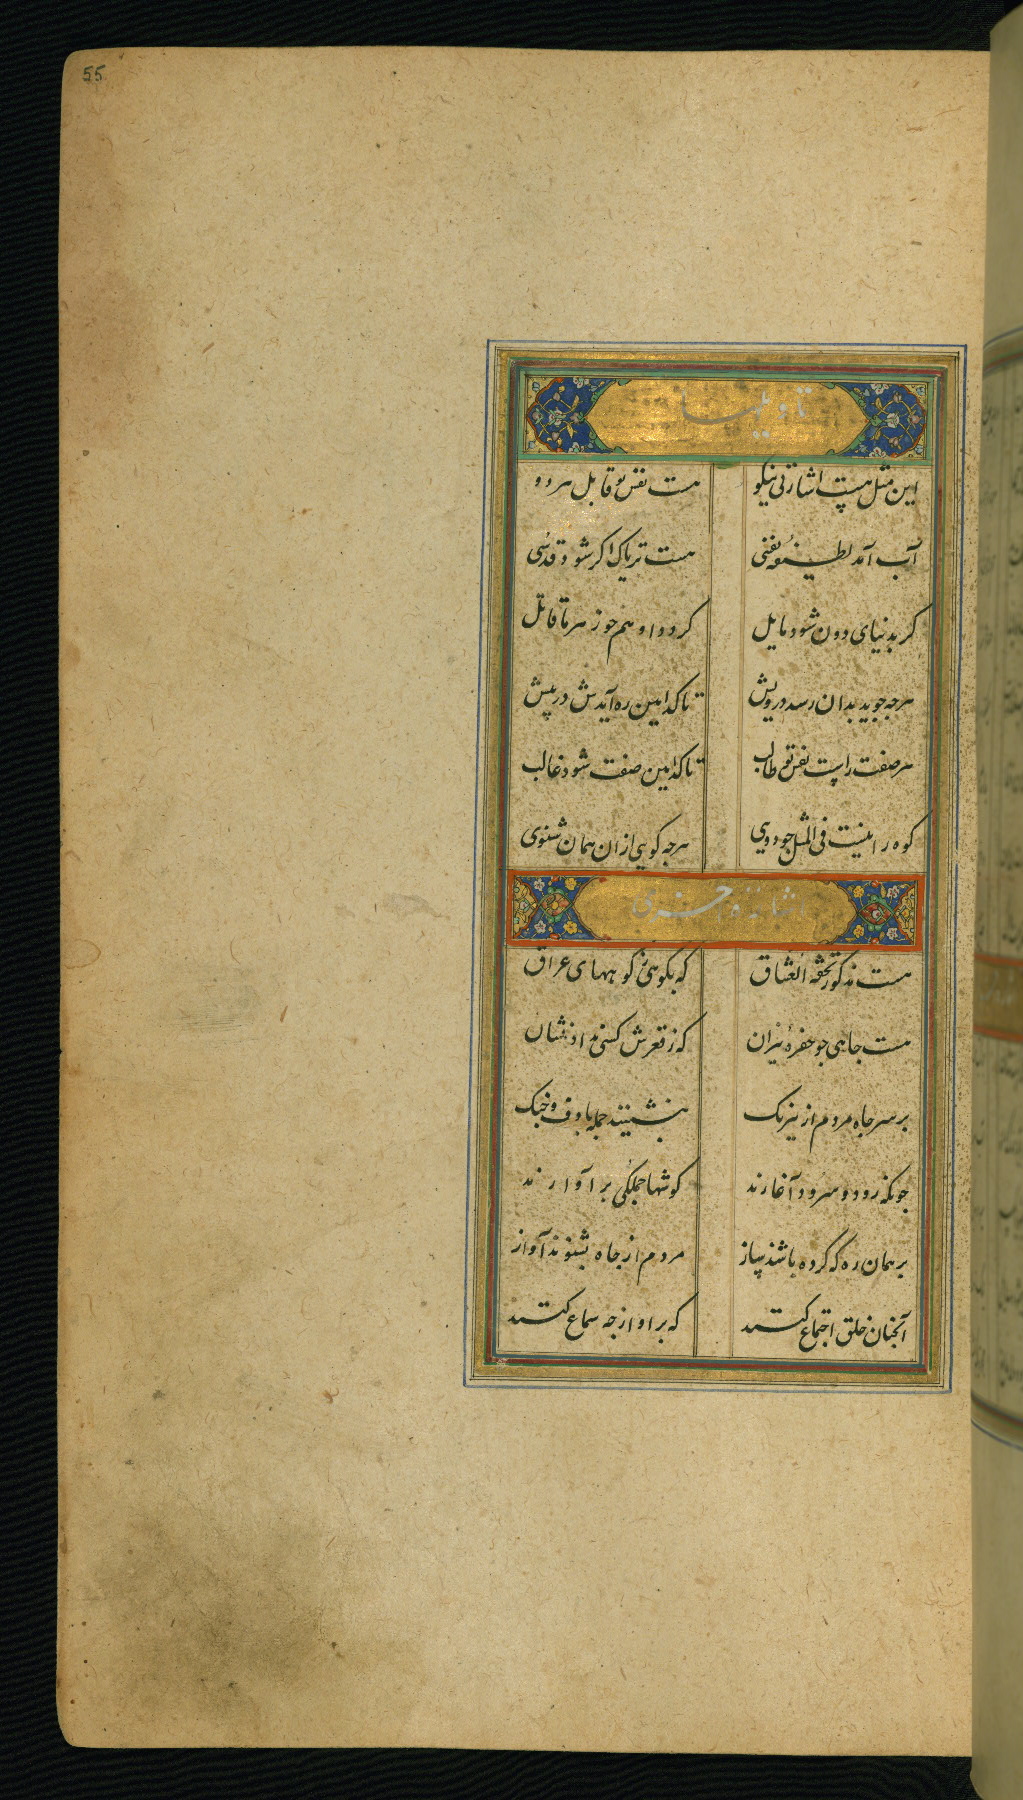 55
تاویلها
این مثل هست اشارتی نیکو
هست نفس تو قابل هر دو
آب آمد لطیفهٔ یعنی
هست تریاک اگر شود قدسی
کر بدنیای دون شود مایل
کردد او همجو زهر ما قاتل
هرجه جوید بدان رسد درویش
تا کدامین ره آیدش در پیش
هر صفت راست نفس تو طالب
تا کدامین صفت شود غالب
کوه را نیست فی المثل جودویی
هرجه کویی ازان همان شنوی
هست مذکور تحفة العشاق
که بکوهی ز کوههای عراق
هست جاهی جو حفرهٔ نیران
که ز قعرش کسی نداد نشان
بر سر جاه مردم از نیرنک
بنشینند جمله با دف و جنک
جونکه رود و سرود آغازند
کوشها جملکی بر آوازند
بر همان ره که کرده باشند ساز
مردم از جاه بشنوند آواز
آنجنان خلق اجتماع کنند
که بر آواز جه سماع کنند